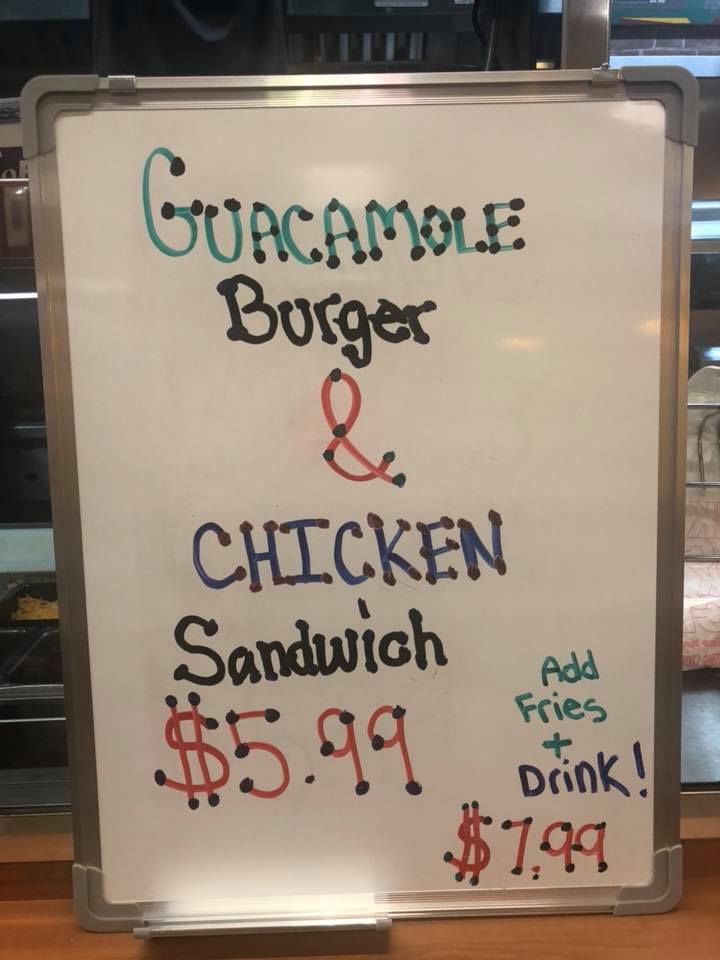 GUACAMOLE
Burger
&
CHICKEN
Sandwich
$5.99
Add
Fries
+
Drink!
$7.99